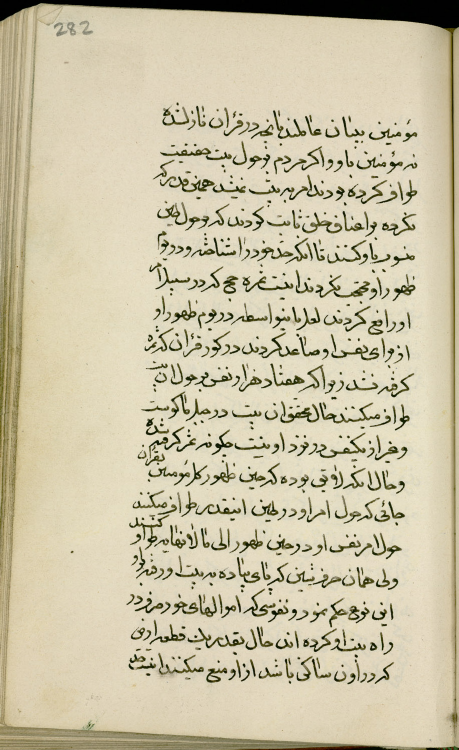 282
مؤمنین ببیان عاملند بآنچه در قرآن نازل شده
نه مؤمنین باو و اگر مردم بر حول بیت حقیقت
طواف کرده بودند امر به بیت نمیشد همین قدر که
نکرده بر اعناق خلق ثابت کردند که بر حول طین
منسوب باو کنند تا آنکه حد خود را شناخته و در یوم
ظهور او محتجب نگردند اینست ثمره حج که در سبیل آمر
او رافع گردند لعل باین واسطه در یوم ظهور او
از برای نفس او صاعد گردند در کور قرآن که ثمره
گرفته نشد زیرا که هفتاد هزار نفس بر حول آن بیت
طواف میکنند حال محقق آن بیت در جبل ماکوست
و غیر از یکنفس در نزد او نیست چگونه ثمر گرفته شده
و حال آنکه لایق بوده که حین ظهور کل مؤمنین بقرآن
جائی که حول امر او در طین اینقدر طواف میکنند
حول امر نفس او در حین ظهور الی ما لا نهایه طواف کنند
ولی همان حرفی نیست که پای پیاده به بیت او رفته و از
این نوع حکم نمود و نفوسی که اموالهای خود صرف در
راه بیت او کرده اند حال بقدر یک قطعه ارض
که در اون ساکن باشد از او منع میکنند اینست حد